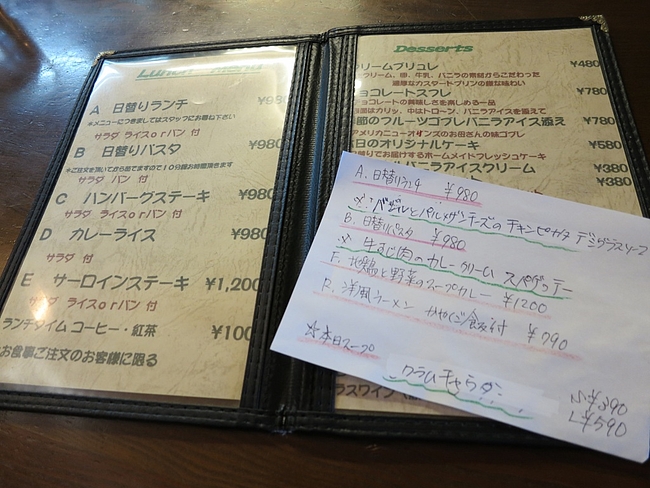 Lunch Menu
A 日替りランチ ¥980
＊メニューにつきましてはスタッフにお尋ね下さい
サラダ ライスorパン 付
B 日替りパスタ ¥980
※ご注文を頂いてから茹でますので10分程お時間頂きます
サラダ パン 付
C ハンバーグステーキ ¥980
サラダ ライスorパン 付
D カレーライス ¥980
サラダ 付
E サーロインステーキ ¥1,200
サラダ ライスorパン 付
ランチタイム コーヒー・紅茶 ¥100
お食事ご注文のお客様に限る
Desserts
リームブリュレ ¥480
クリーム、卵、牛乳、バニラの素材からこだわった
濃厚なカスタードプリンの様な味わい
ョコレートスフレ ¥780
チョコレートの美味しさを楽しめる一品
はカリッ、中はトローン、バニラアイスを添えて
節のフルーツゴフレバニラアイス添え ¥780
アメリカニューオリンズのお田さんの味ゴフレ
日のオリジナルケーキ ¥580
替りでお届けするホームメイドフレッシュケーキ
バニラアイスクリーム ¥380
¥380
A. 日替りランチ ¥980
※バジルとパルメザンチーズのチキンピカタ デミグラスソース
B. 日替りパスタ ¥980
※牛すじ肉のカレークリーム スパゲッティー
F. 地鶏と野菜のスープカレー ¥1200
R. 洋風ラーメン かやくご飯付 ¥790
☆本日スープ
クラムチャウダー
M ¥390
L ¥590
ラスワイン